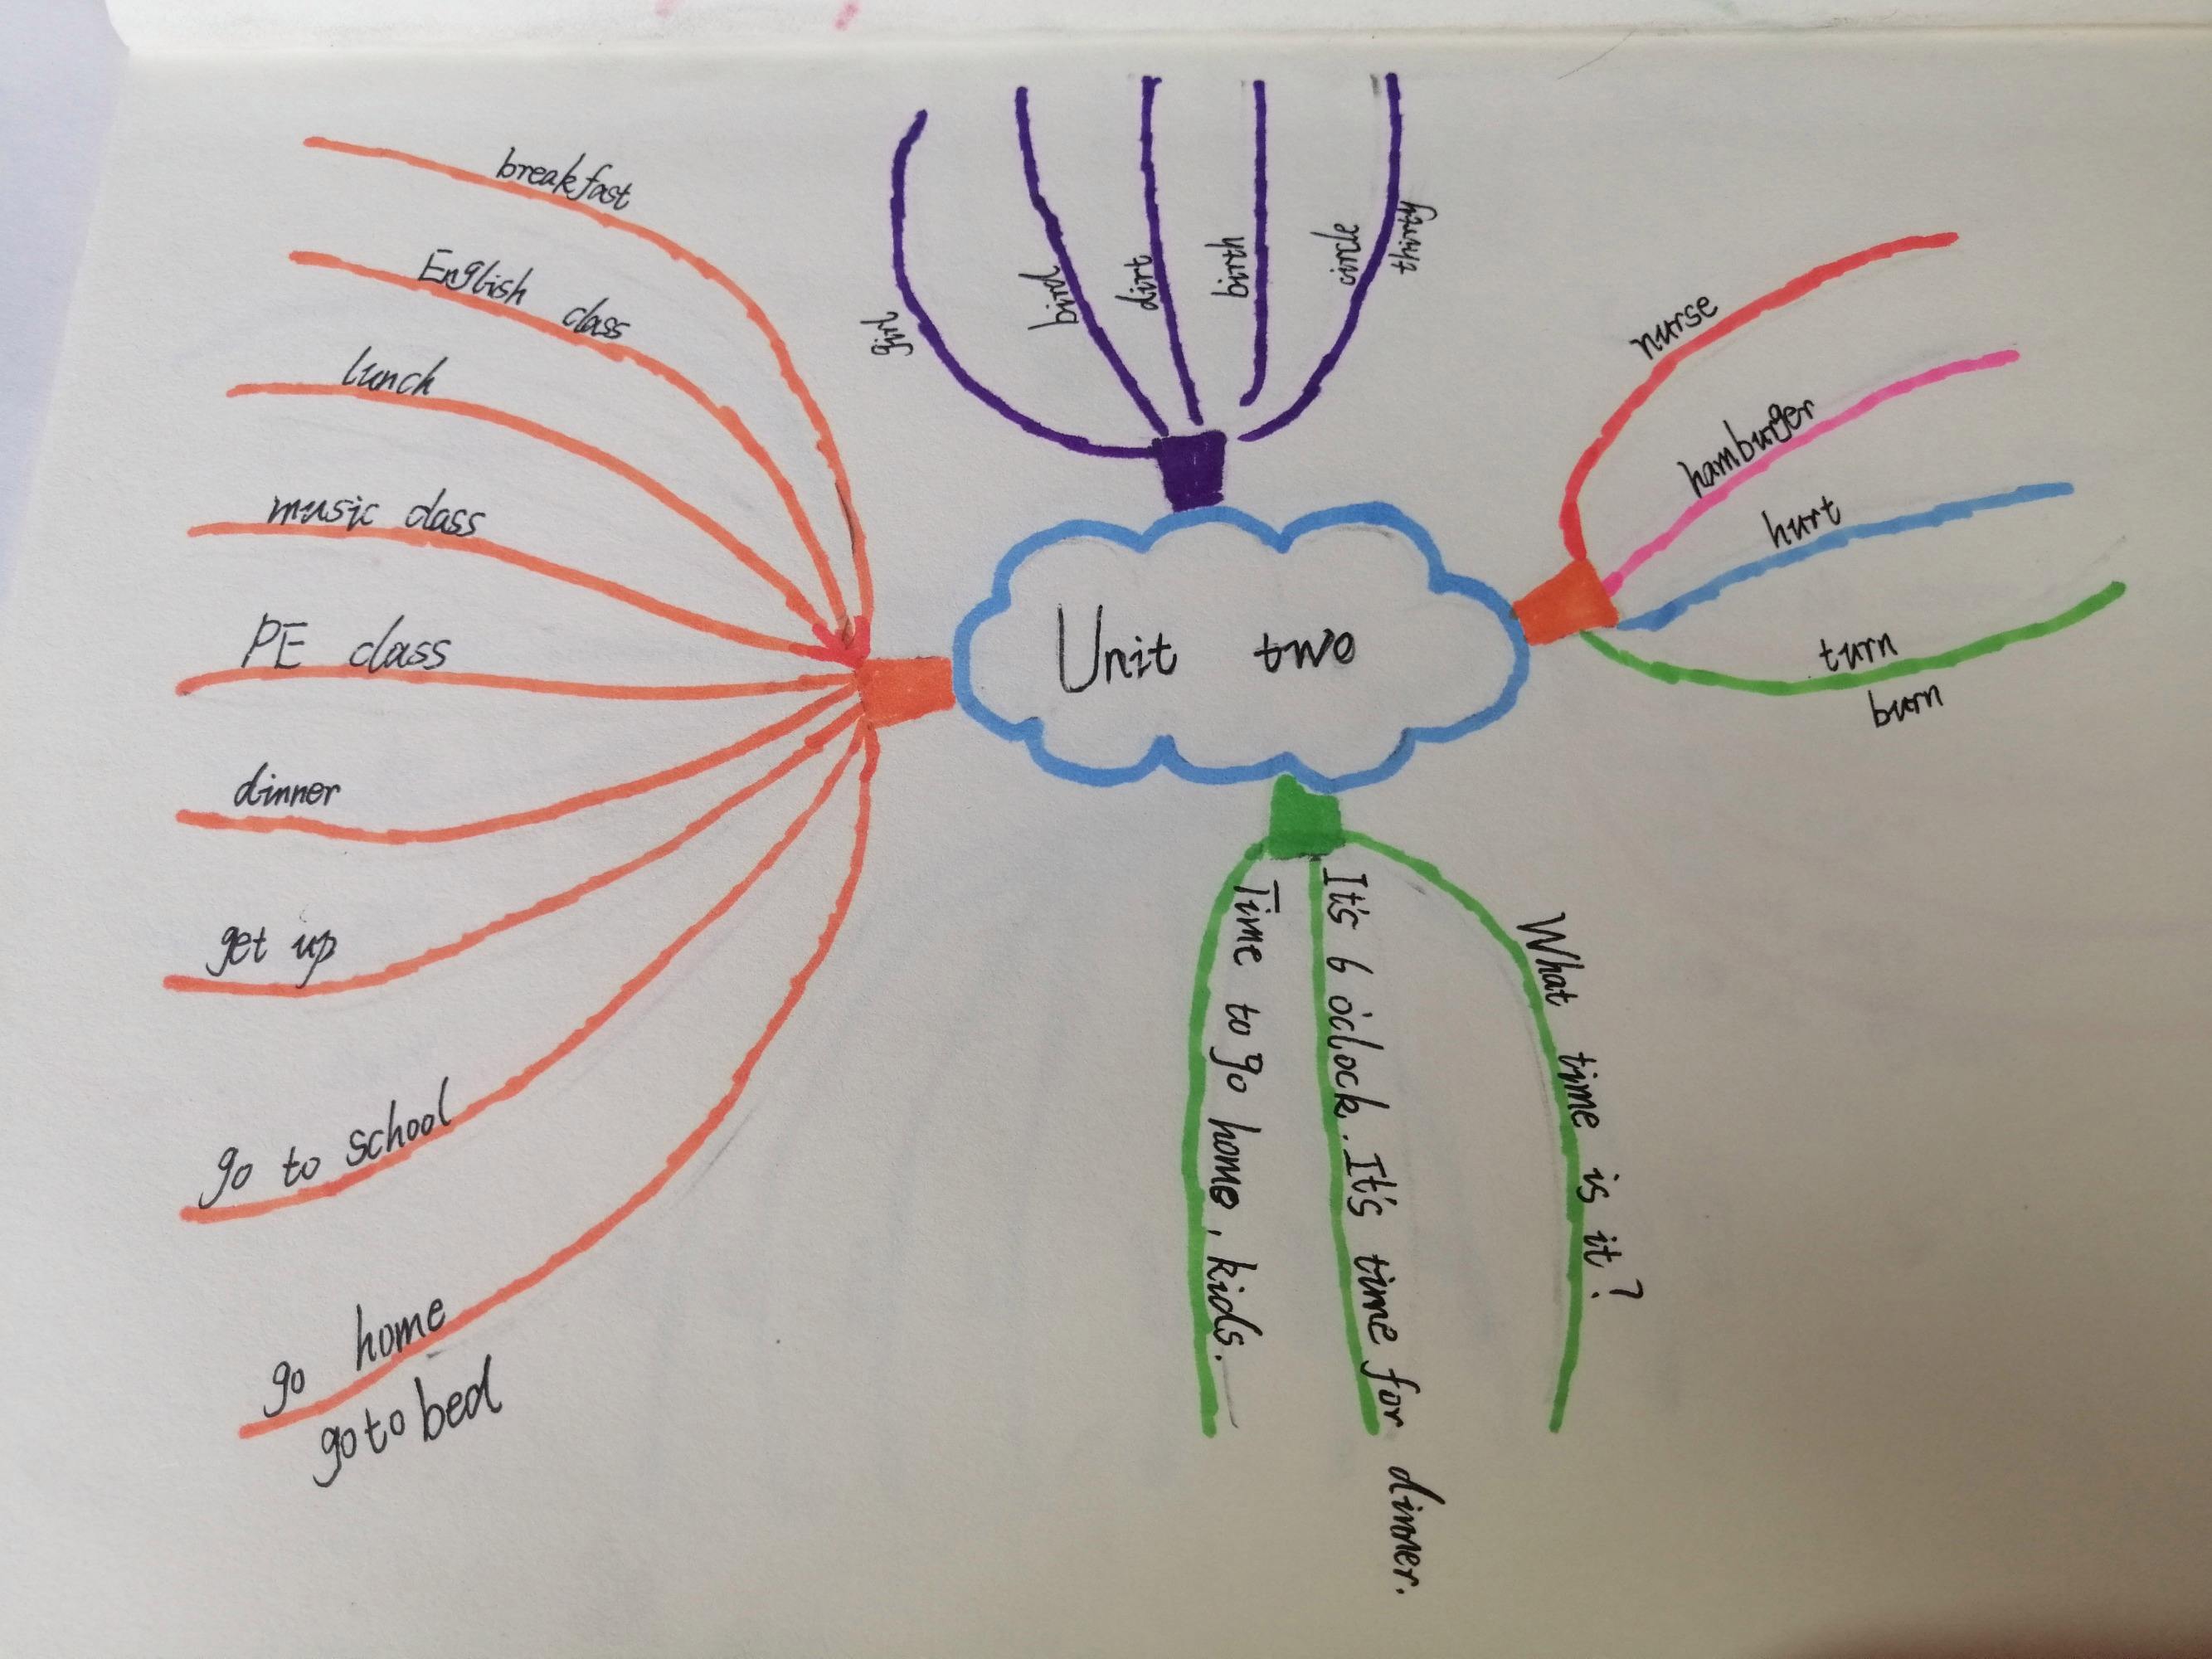 Unit two
breakfast
English class
lunch
music class
PE class
dinner
get up
go to school
go home
go to bed
girl
bird
dirt
birth
circle
thirty
nurse
hamburger
hurt
turn
burn
What time is it?
It's 6 o'clock. It's time for dinner.
Time to go home, kids.